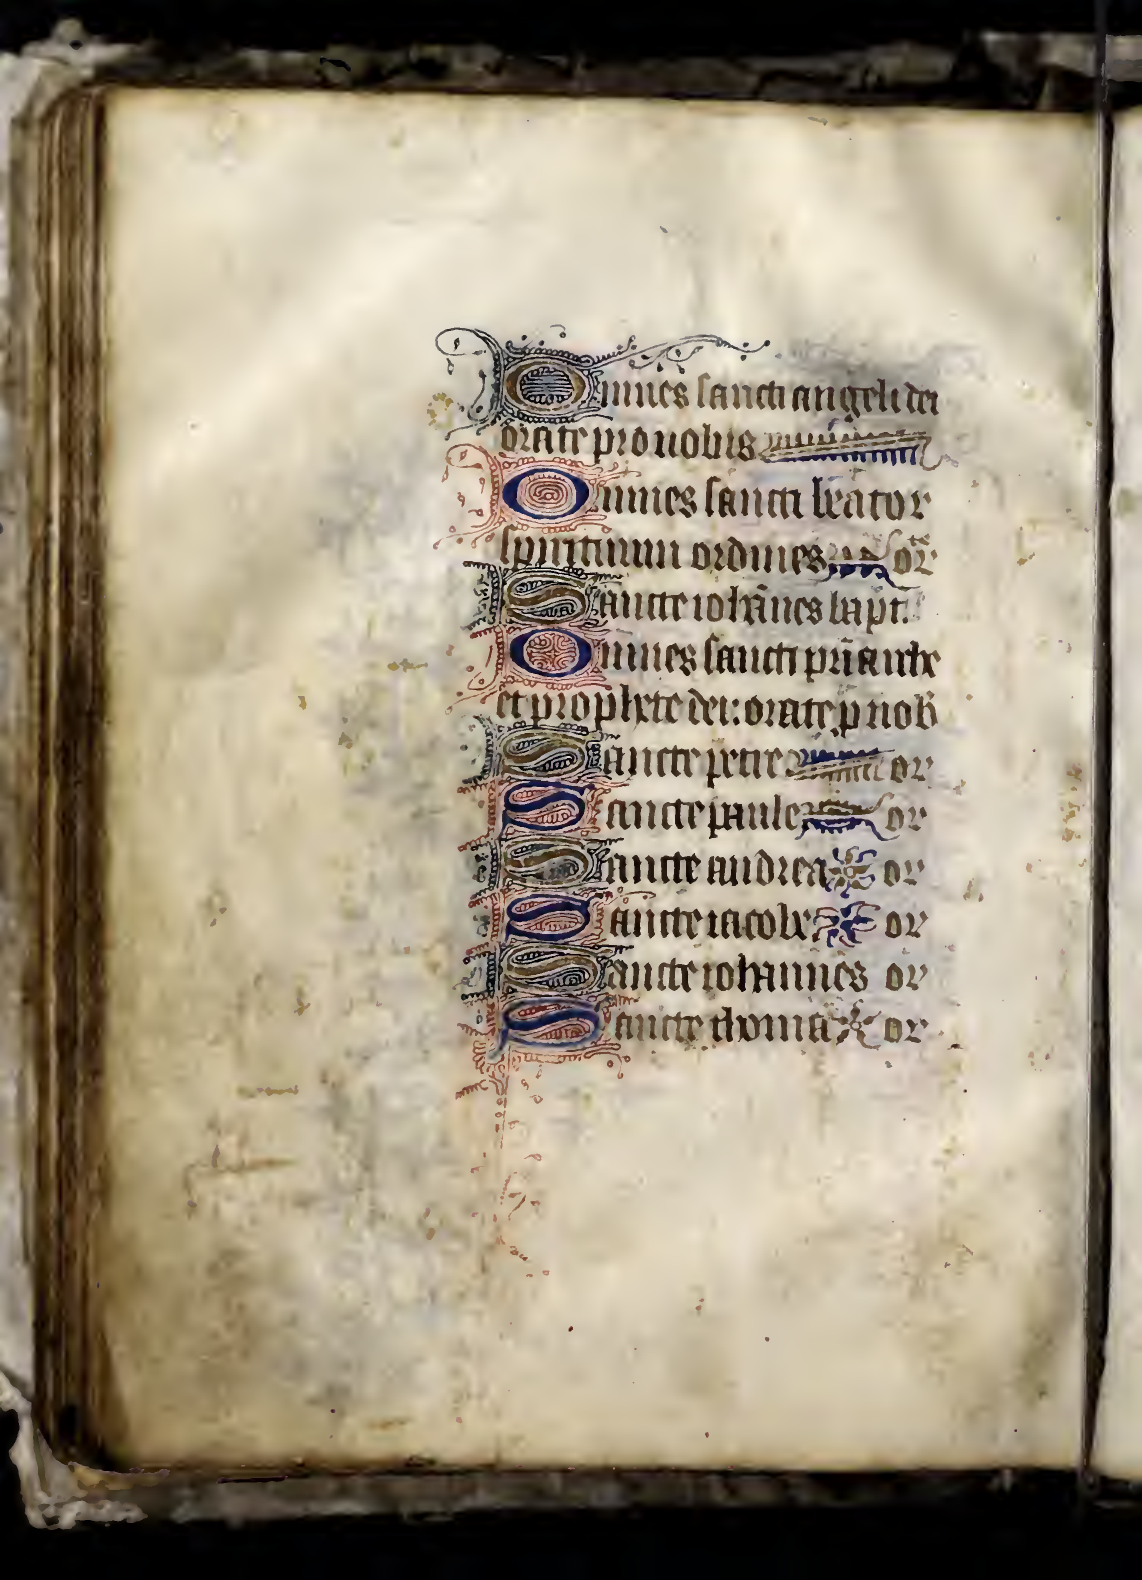 Omnes sancti angeli dei
orate pro nobis
Omnes sancti beator
spirituum ordines or
Sancte ioh̄nes bapt.
Omnes sancti pr̄iarche
et prophete dei: orate p nob
Sancte petre or
Sancte paule or
Sancte andrea or
Sancte iacobe or
Sancte iohannes or
Sancte thoma or